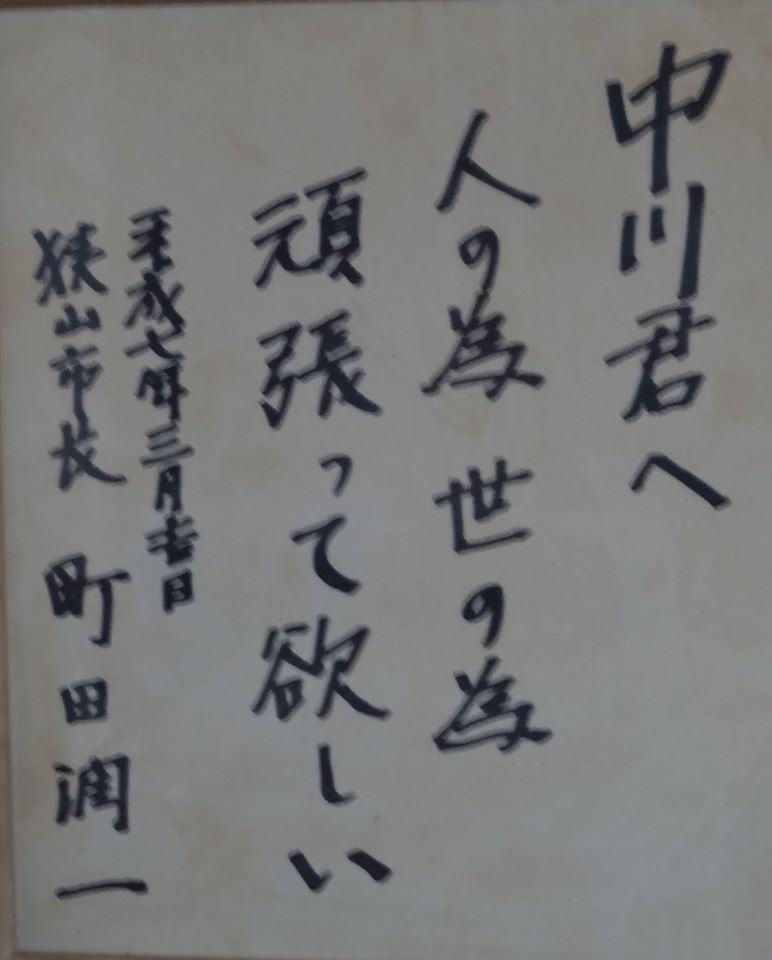 中川君へ
人の為世の為
頑張って欲しい
平成七年三月吉日
狭山市長 町田潤一